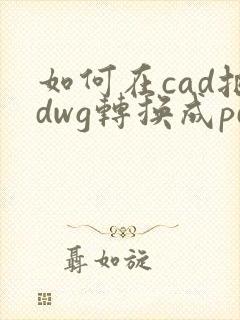 如何在cad把
dwg轉換成p
聶如旋